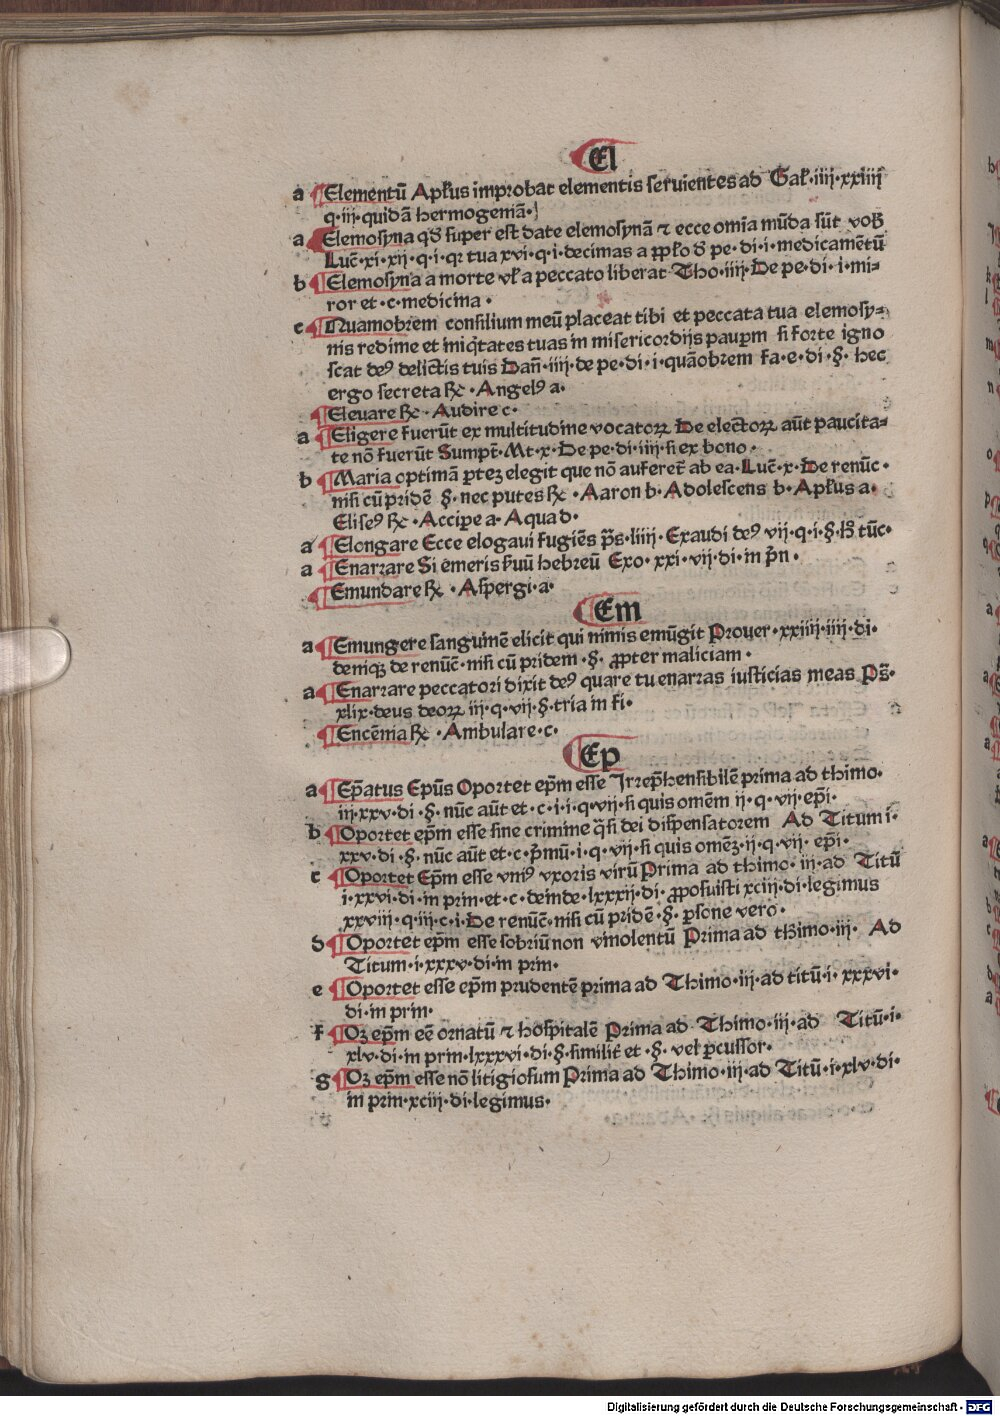 El
a Elementū Apłus improbat elementis seruientes ad Gał·iiij·xxiiij
q·iij·quidā hermogeniā·
a Elemosyna qd̄ super est date elemosynā ⁊ ecce omīa mūda sūt vob̄
Luc̄·xi·xij·q·i·qꝛ tua xvi·q·i·decimas a ꝓpło d̄ pe·di·i·medicamētū
b Elemosyna a morte vł a peccato liberat Tho·iiij·De pe·di·i·mi-
ror et·c·medicina·
c Quamobrem consilium meū placeat tibi et peccata tua elemosy-
nis redime et iniq̄tates tuas in misericordijs pauꝑm si forte igno
scat deꝰ delictis tuis Dan̄·iiij·de pe·di·i·quāobrem fa·e·di·§·hec
ergo secreta ℞c·Angelꝰ a·
Eleuare ℞c·Audire c·
a Eligere fuerūt ex multitudine vocatoꝝ De electoꝝ aūt paucita-
te nō fuerūt Sumpt̄·Mt·x·De pe·di·iiij·si ex bono·
b Maria optimā ꝑteꝫ elegit que nō aufereẗ ab ea·Luc̄·x·De renūc·
nisi cū pridē §·nec putes ℞c·Aaron b·Adolescens b·Apłus a·
Eliseꝰ ℞c·Accipe a·Aqua d·
a Elongare Ecce elogaui fugiēs p̄s·liiij·Exaudi deꝰ vij·q·i·§·h̄ tūc·
a Enarrare Si emeris s̄uū hebreū Exo·xxi·vij·di·in p̄n·
Emundare ℞·Aspergi·a·
Em
a Emungere sanguinē elicit qui nimis emūgit Prouer·xxiiij·iiij·di·
denīqꝫ de renūc̄·nisi cū pridem·§·ꝓpter maliciam·
a Enarrare peccatori dixit deꝰ quare tu enarras iusticias meas Ps̄·
xlix·deus deoꝝ iij·q·vij·§·tria in fi·
Encēnia ℞·Ambulare·c·
Ep
a Ep̄atus Epūs Oportet ep̄m esse Jrrep̄hensibilē prima ad thimo·
iij·xxv·di·§·nūc aūt et·c·i·i·q·vij·si quis omēm ij·q·vij·ep̄i·
b Oportet ep̄m esse sine crimine q̄si dei dispensatorem Ad Titum i·
xxv·di·§·nūc aūt et·c·p̄mū·i·q·vij·si quis omēꝫ·ij·q·vij·ep̄i·
c Oportet Ep̄m esse vniꝰ vxoris virū Prima ad thimo·iij·ad Titū
i·xxvi·di·in prin·et·c·deinde·lxxxij·di·ꝓposuisti xciij·di·legimus
xxviij·q·iij·c·i·De renūc̄·nisi cū pridē·§·ꝑsone vero·
d Oportet ep̄m esse sobriū non vinolentū Prima ad thimo·iij·Ad
Titum·i·xxxv·di·in prin·
e Oportet esse ep̄m prudentē prima ad Thimo·iij·ad titū·i·xxxvi·
di·in prin·
f Oꝫ ep̄m eē ornatū ⁊ hospitalē Prima ad Thimo·iij·ad Titū·i·
xlv·di·in prin·lxxxvi·di·§·similit̄ et·§·veł ꝑcussor·
g Oꝫ ep̄m esse nō litigiosum Prima ad Thimo·iij·ad Titū·i·xlv·di·
in prin·xciij·di·legimus·
Digitalisierung gefördert durch die Deutsche Forschungsgemeinschaft - DFG